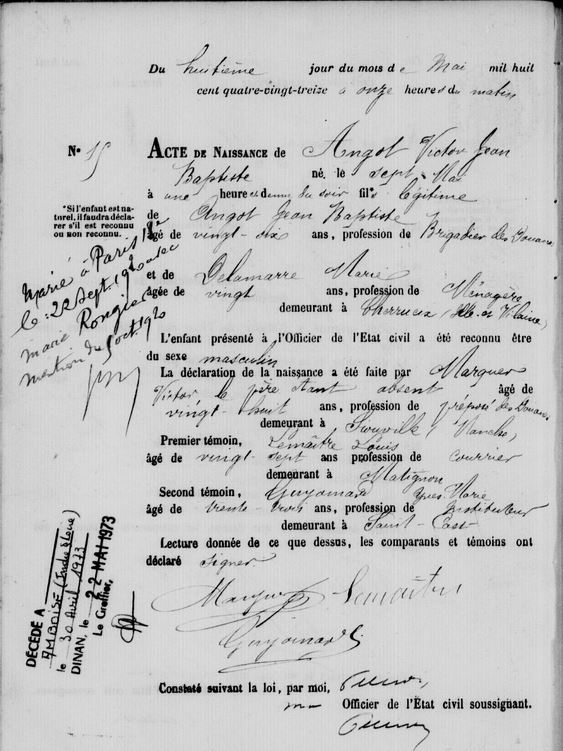 Du huitième jour du mois de Mai mil huit
cent quatre-vingt-treize à onze heures du matin
N° 15
ACTE DE NAISSANCE de Angot Victor Jean
Baptiste né le sept Mai
à une heure et demie du soir fils légitime
*Si l'enfant est na-
turel, il faudra décla-
rer s'il est reconnu
ou non reconnu.
de Angot Jean Baptiste
âgé de vingt-six ans, profession de Brigadier des Douanes
Marié à Paris
le 22 Sept. 1920 avec
Marie Rongier
mention du 5 oct. 1920
et de Delamarre Marie
âgée de vingt ans, profession de Ménagère
demeurant à Cherrueix (Ille et Vilaine)
L'enfant présenté à l'Officier de l'Etat civil a été reconnu être
du sexe masculin
La déclaration de la naissance a été faite par Marguer
Victor le père étant absent âgé de
vingt-huit ans, profession de préposé des Douanes
demeurant à (Manche)
Premier témoin, Lemaître Louis
âgé de vingt-sept ans profession de courrier
demeurant à Matignon
Second témoin, Guyomard Yves Marie
âgé de trente-trois ans, profession de Instituteur
demeurant à Saint-Cast
Lecture donnée de ce que dessus, les comparants et témoins ont
déclaré signer
Lemaître
Guyomard
DÉCÉDÉ A
AMBOISE (Indre & Loire)
le 30 Avril 1973
DINAN, le 22 MAI 1973
Le Greffier,
Constaté suivant la loi, par moi,
Officier de l'Etat civil soussigné.